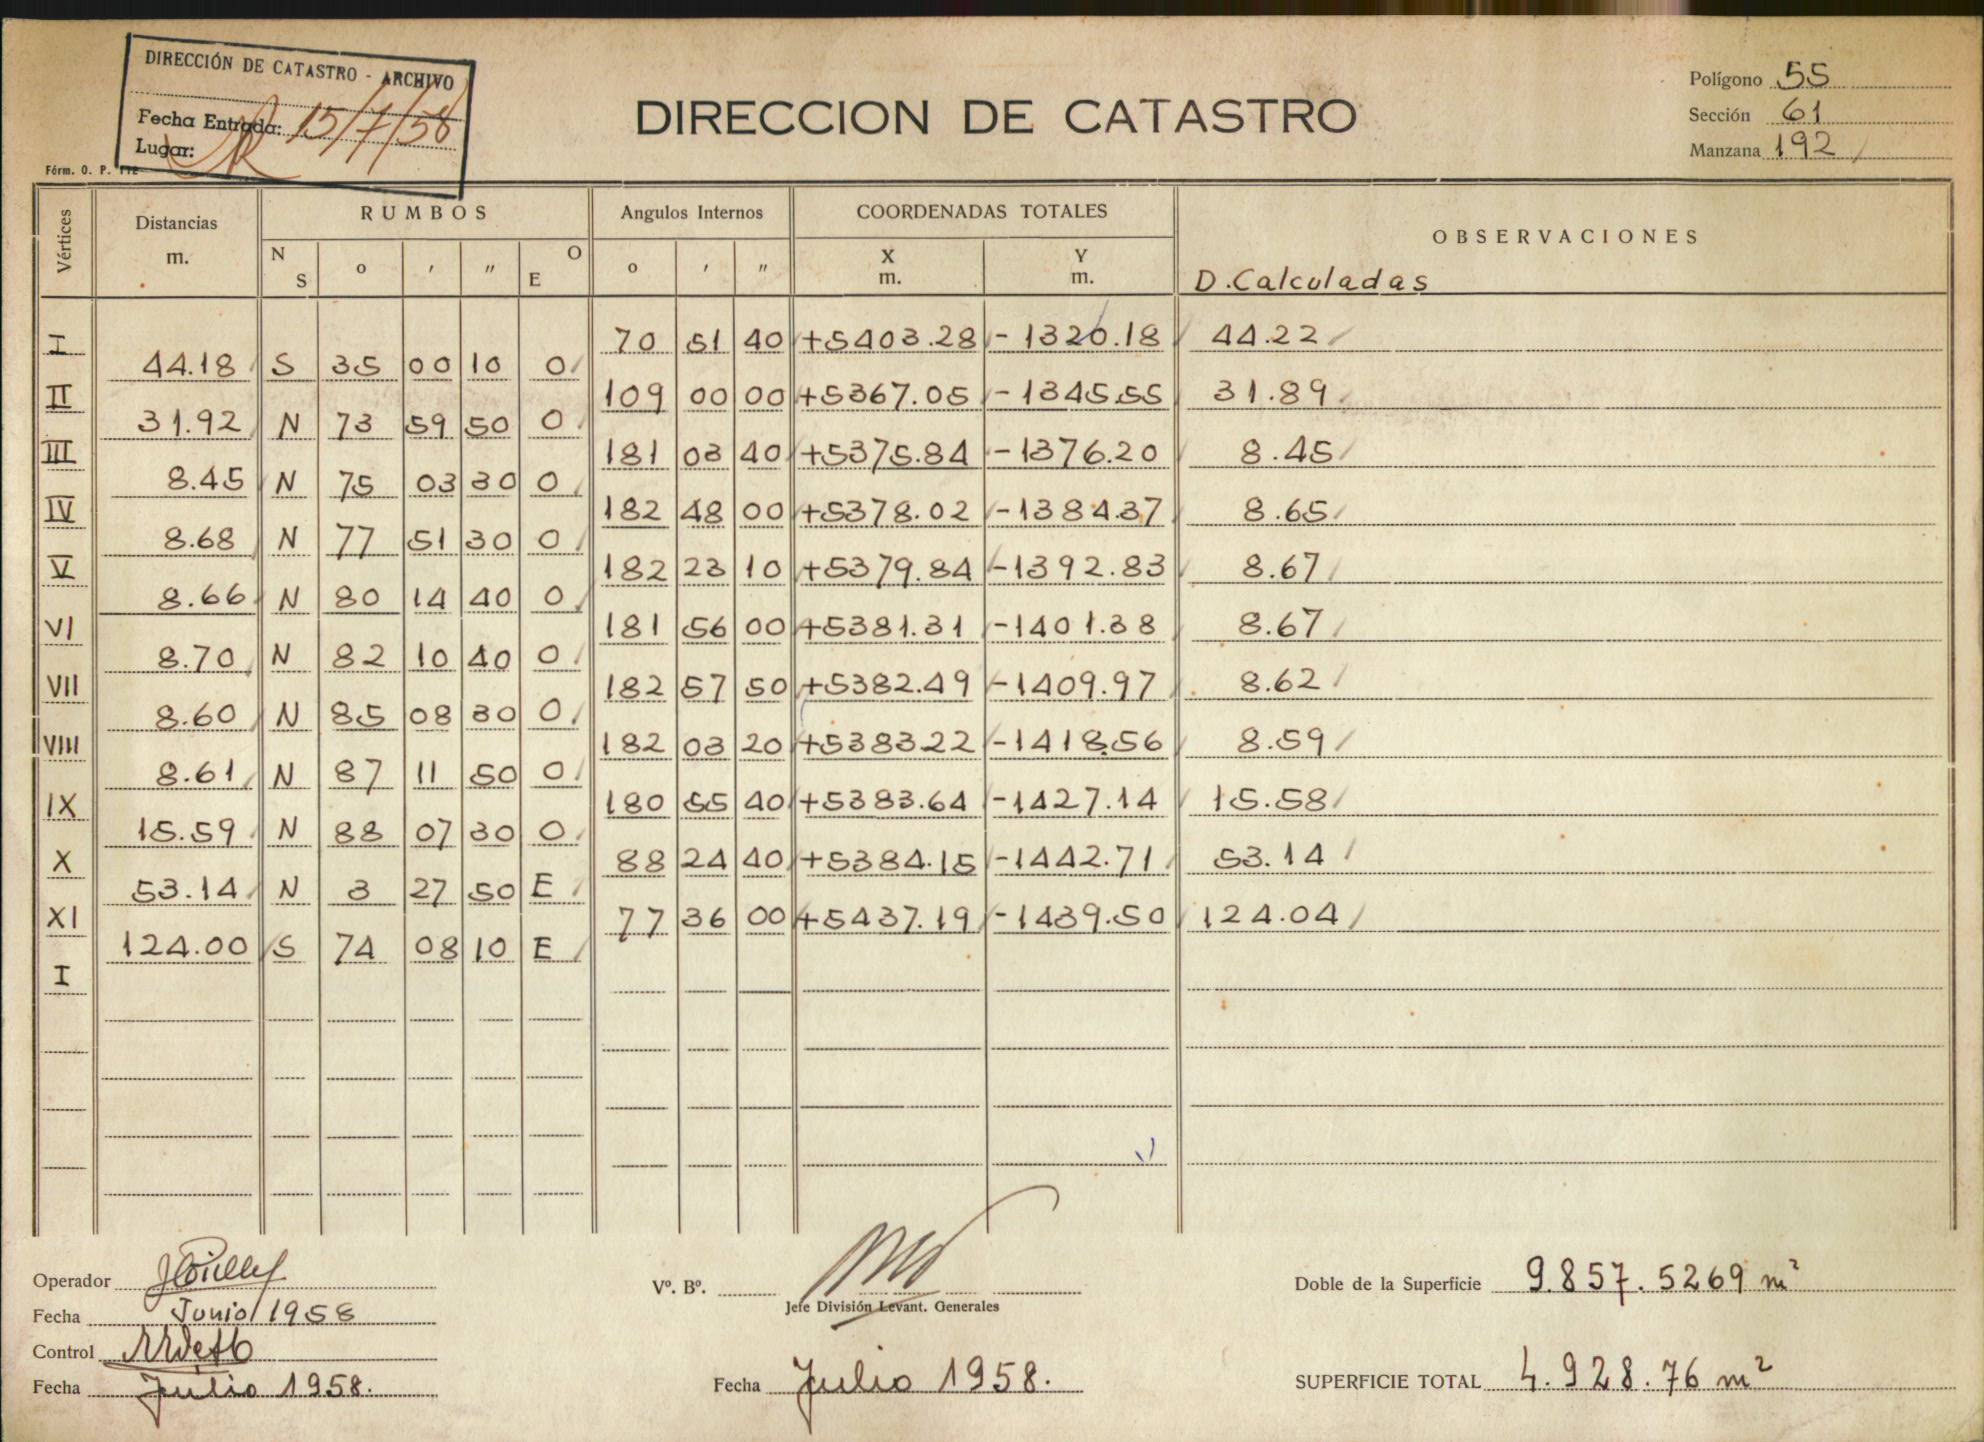 DIRECCIÓN DE CATASTRO - ARCHIVO
Fecha Entrada: 15/7/58
Lugar:
Fórm. O. P.
DIRECCION DE CATASTRO
Polígono 55
Sección 61
Manzana 192
Vértices Distancias m. RUMBOS Angulos Internos COORDENADAS TOTALES OBSERVACIONES
N S o ' " O E o ' " X m. Y m. D. Calculadas
I 70 51 40 +5403.28 -1320.18 44.22
44.18 S 35 00 10 O
II 109 00 00 +5367.05 -1345.55 31.89
31.92 N 73 59 50 O
III 181 03 40 +5375.84 -1376.20 8.45
8.45 N 75 03 30 O
IV 182 48 00 +5378.02 -1384.37 8.65
8.68 N 77 51 30 O
V 182 23 10 +5379.84 -1392.83 8.67
8.66 N 80 14 40 O
VI 181 56 00 +5381.31 -1401.38 8.67
8.70 N 82 10 40 O
VII 182 57 50 +5382.49 -1409.97 8.62
8.60 N 85 08 30 O
VIII 182 03 20 +5383.22 -1418.56 8.59
8.61 N 87 11 50 O
IX 180 55 40 +5383.64 -1427.14 15.58
15.59 N 88 07 30 O
X 88 24 40 +5384.15 -1442.71 53.14
53.14 N 3 27 50 E
XI 77 36 00 +5437.19 -1439.50 124.04
124.00 S 74 08 10 E
I
Operador
Fecha Junio/1958
Control
Fecha Julio 1958.
Vº. Bº.
Jefe División Levant. Generales
Fecha Julio 1958.
Doble de la Superficie 9.857.5269 m²
SUPERFICIE TOTAL 4.928.76 m²